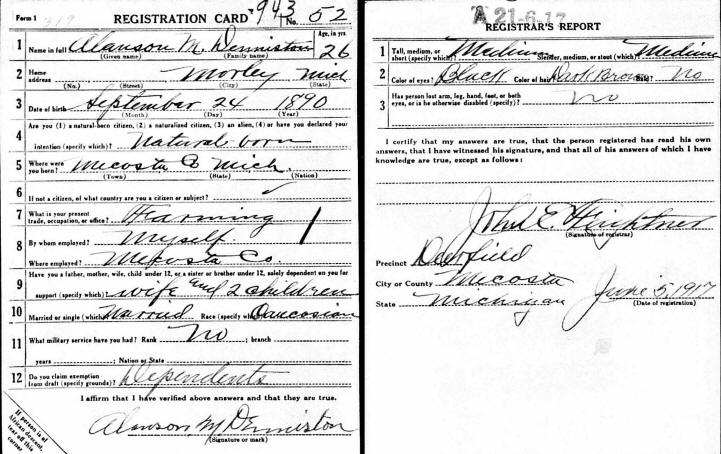 Form 1 319 REGISTRATION CARD 943 No. 52
1 Name in full Alanson M. Denniston Age, in yrs. 26
(Given name) (Family name)
2 Home address Morley Mich
(No.) (Street) (City) (State)
3 Date of birth September 24 1890
(Month) (Day) (Year)
4 Are you (1) a natural-born citizen, (2) a naturalized citizen, (3) an alien, (4) or have you declared your
intention (specify which)? Natural born
5 Where were you born? Mecosta Co Mich.
(Town) (State) (Nation)
6 If not a citizen, of what country are you a citizen or subject?
7 What is your present trade, occupation, or office? Farming
8 By whom employed? Myself
Where employed? Mecosta Co.
9 Have you a father, mother, wife, child under 12, or a sister or brother under 12, solely dependent on you for
support (specify which)? wife and 2 children
10 Married or single (which) Married Race (specify which) Caucasian
11 What military service have you had? Rank No ; branch
years ; Nation or State
12 Do you claim exemption from draft (specify grounds)? Dependents
I affirm that I have verified above answers and that they are true.
Alanson M Denniston
(Signature or mark)
If person is of African descent, tear off this corner
A 21-6-17
REGISTRAR'S REPORT
1 Tall, medium, or short (specify which)? Medium Slender, medium, or stout (which)? Medium
2 Color of eyes? Black Color of hair? Dark Brown Bald? No
3 Has person lost arm, leg, hand, foot, or both eyes, or is he otherwise disabled (specify)? No
I certify that my answers are true, that the person registered has read his own
answers, that I have witnessed his signature, and that all of his answers of which I have
knowledge are true, except as follows:
John E.
(Signature of registrar)
Precinct Deerfield
City or County Mecosta
State Michigan June 5, 1917
(Date of registration)